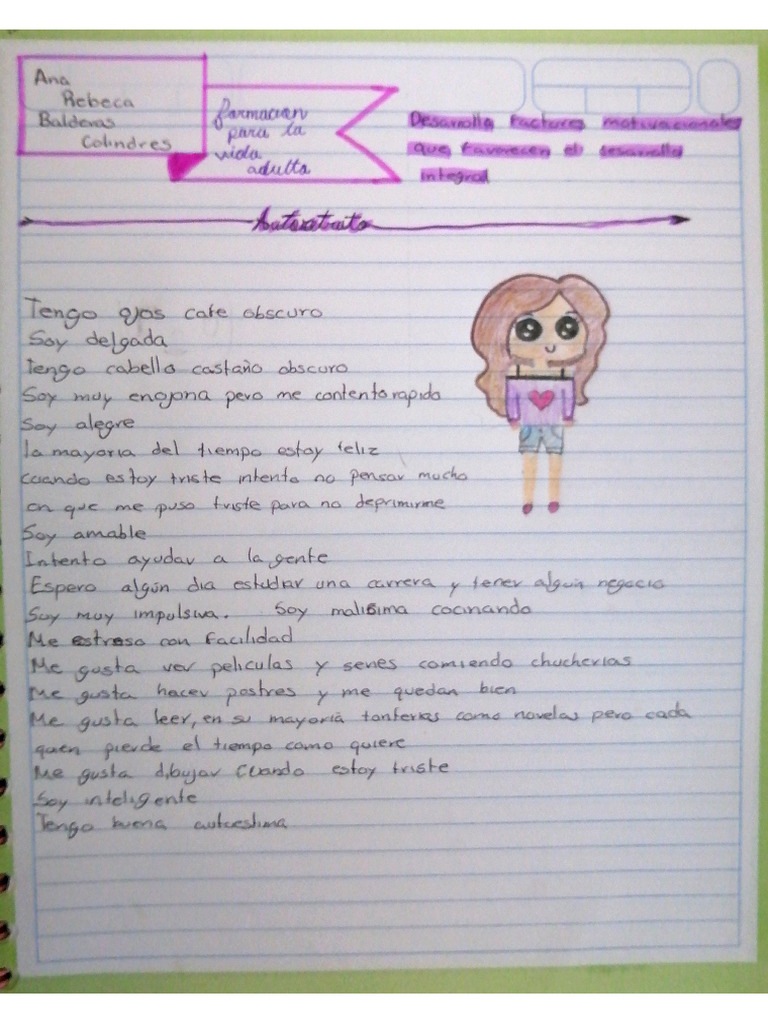 Ana
Rebeca
Balderas
Colindres
formacion
para la
vida
adulta
Desarrolla factores motivacionales
que favorecen el desarrollo
integral
Autoretrato
Tengo ojos cafe obscuro
Soy delgada
Tengo cabello castaño obscuro
Soy muy enojona pero me contento rapido
Soy alegre
la mayoria del tiempo estoy feliz
cuando estoy triste intento no pensar mucho
en que me puso triste para no deprimirme
Soy amable
Intento ayudar a la gente
Espero algún dia estudiar una carrera y tener algun negocio
Soy muy impulsiva. Soy malisima cocinando
Me estreso con facilidad
Me gusta ver peliculas y series comiendo chucherias
Me gusta hacer postres y me quedan bien
Me gusta leer, en su mayoria tonterias como novelas pero cada
quien pierde el tiempo como quiere
Me gusta dibujar cuando estoy triste
Soy inteligente
Tengo buena autoestima